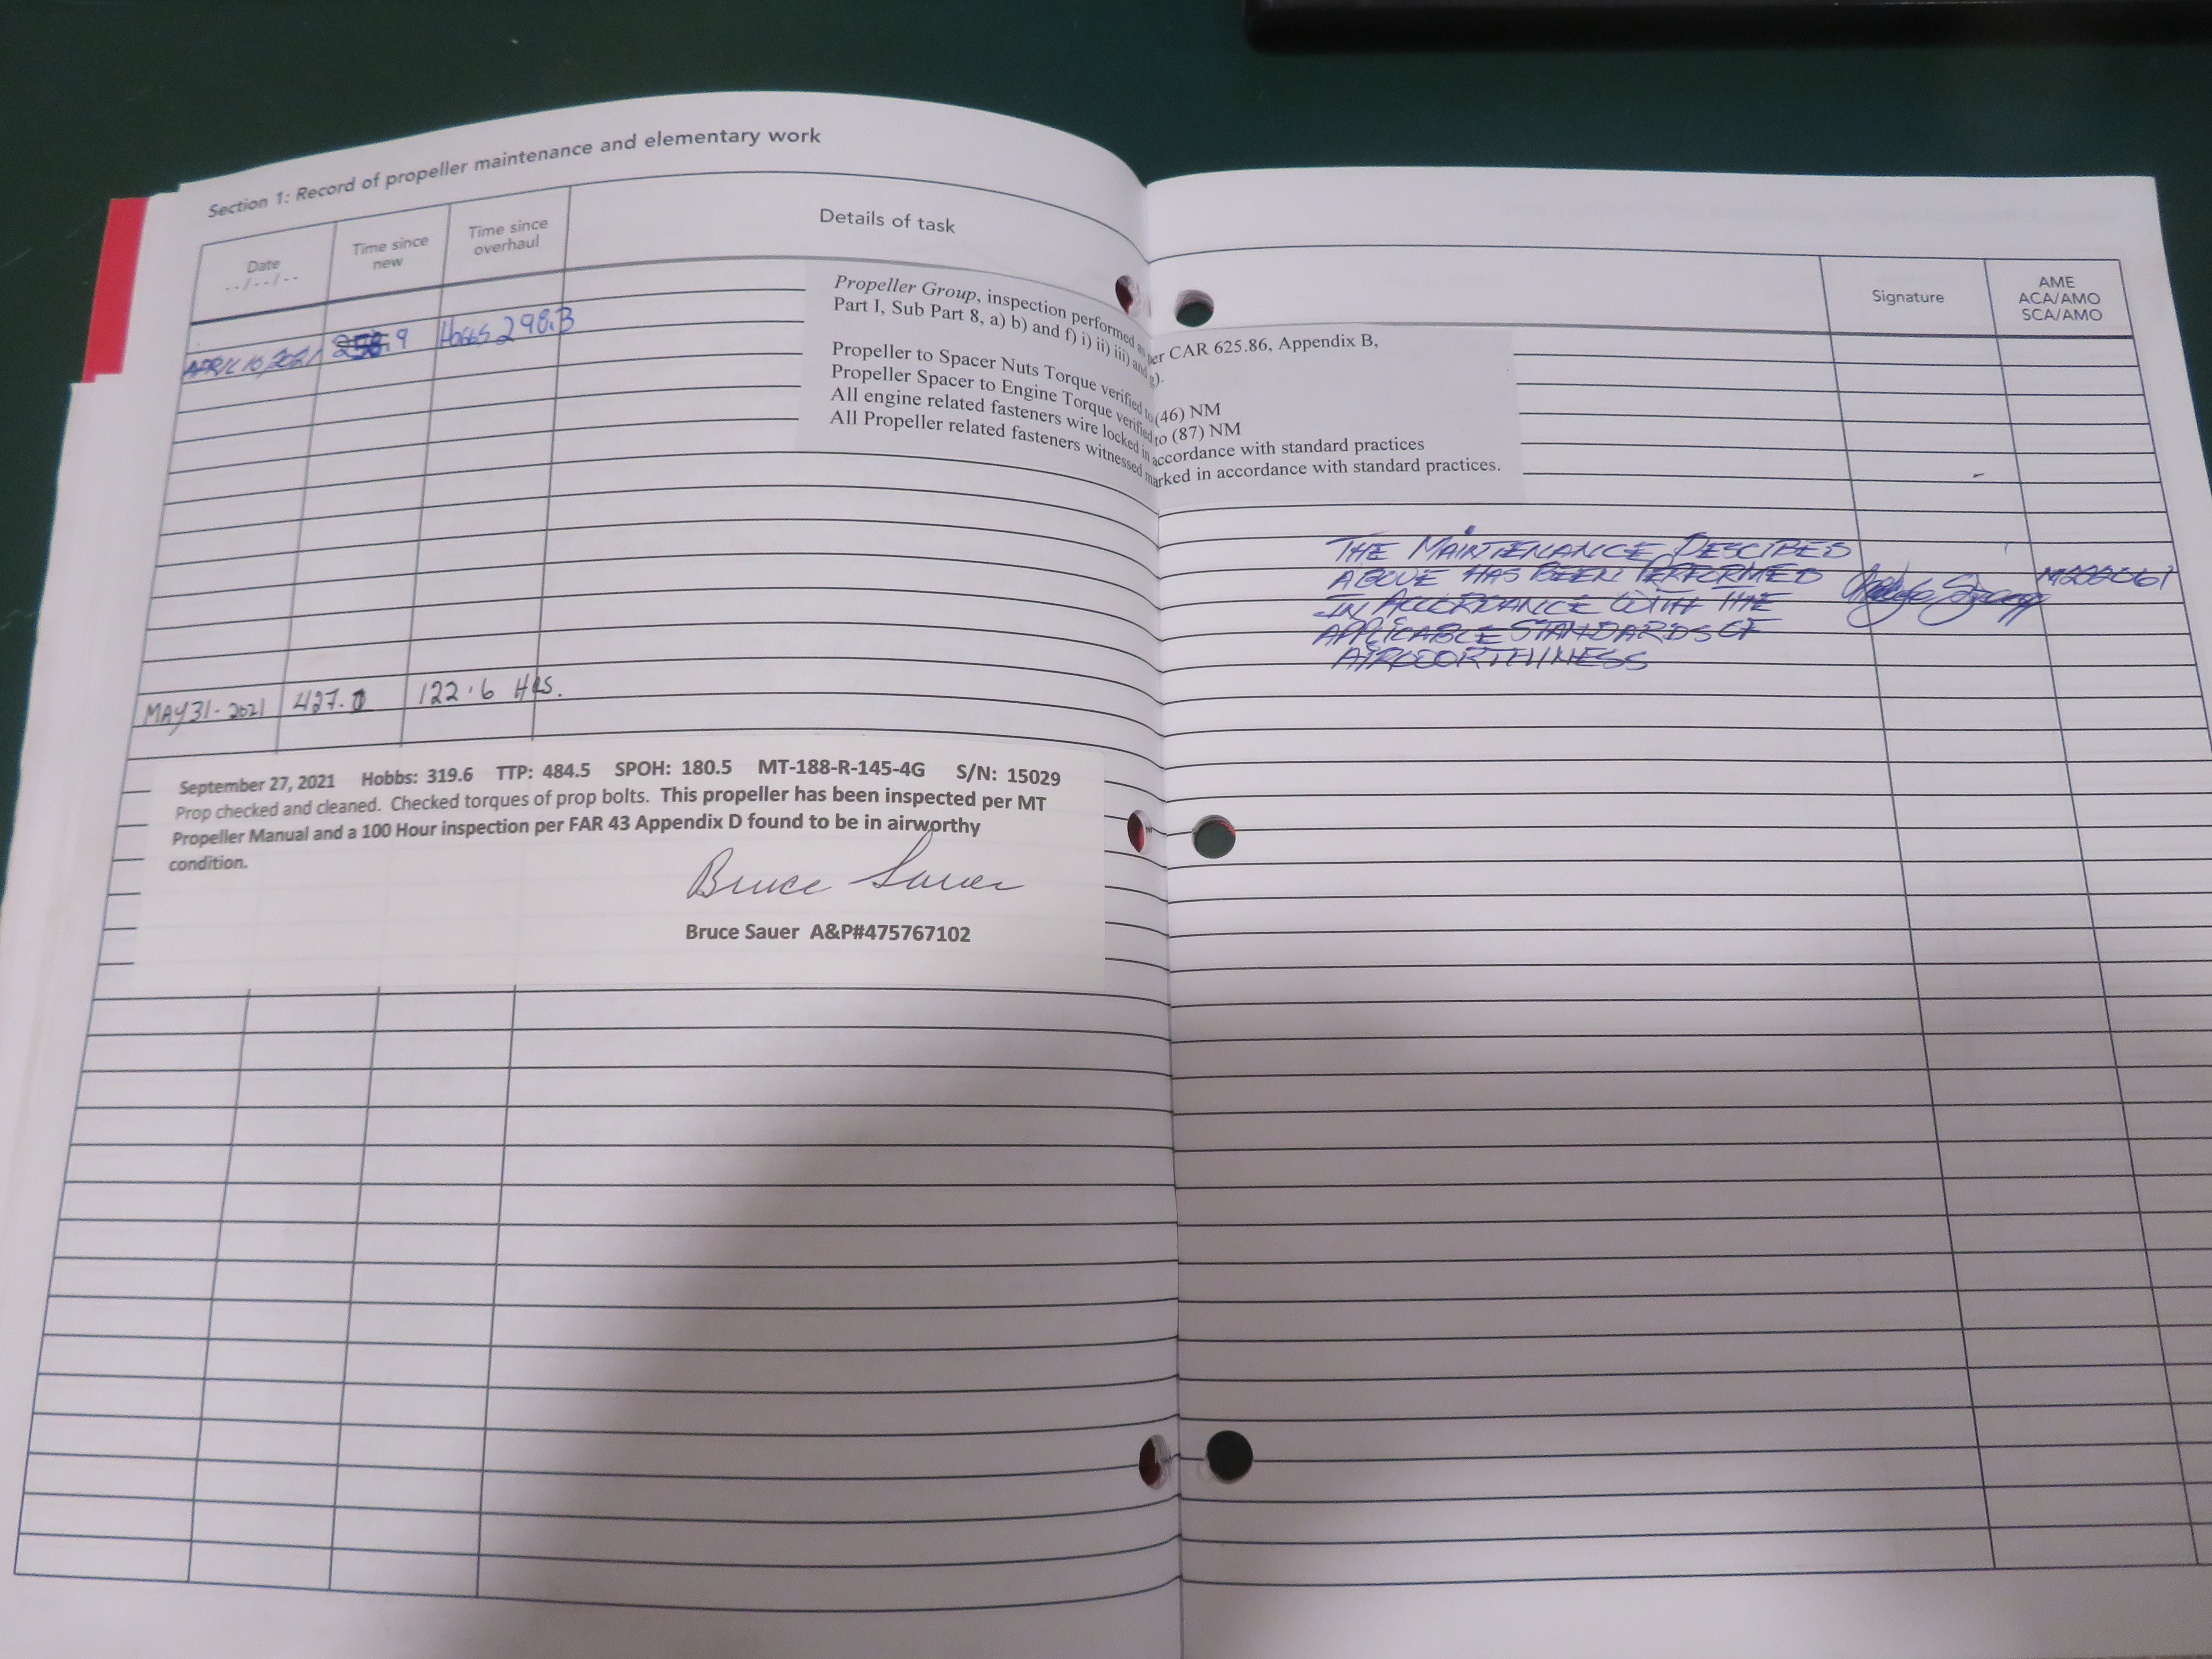 Section 1: Record of propeller maintenance and elementary work
Date
--/--/--
Time since
new
Time since
overhaul
Details of task
Signature
AME
ACA/AMO
SCA/AMO
APRIL 10, 2021 Hobbs 298.3
Propeller Group, inspection performed as per CAR 625.86, Appendix B,
Part I, Sub Part 8, a) b) and f) i) ii) iii) and g).
Propeller to Spacer Nuts Torque verified to (46) NM
Propeller Spacer to Engine Torque verified to (87) NM
All engine related fasteners wire locked in accordance with standard practices
All Propeller related fasteners witnessed marked in accordance with standard practices.
THE MAINTENANCE DESCIBED
ABOVE HAS BEEN PERFORMED
IN ACCORDANCE WITH THE
APPLICABLE STANDARDS OF
AIRWORTHINESS
MAY 31-2021 427.0 122.6 HRS.
September 27, 2021 Hobbs: 319.6 TTP: 484.5 SPOH: 180.5 MT-188-R-145-4G S/N: 15029
Prop checked and cleaned. Checked torques of prop bolts. This propeller has been inspected per MT
Propeller Manual and a 100 Hour inspection per FAR 43 Appendix D found to be in airworthy
condition.
Bruce Sauer
Bruce Sauer A&P#475767102